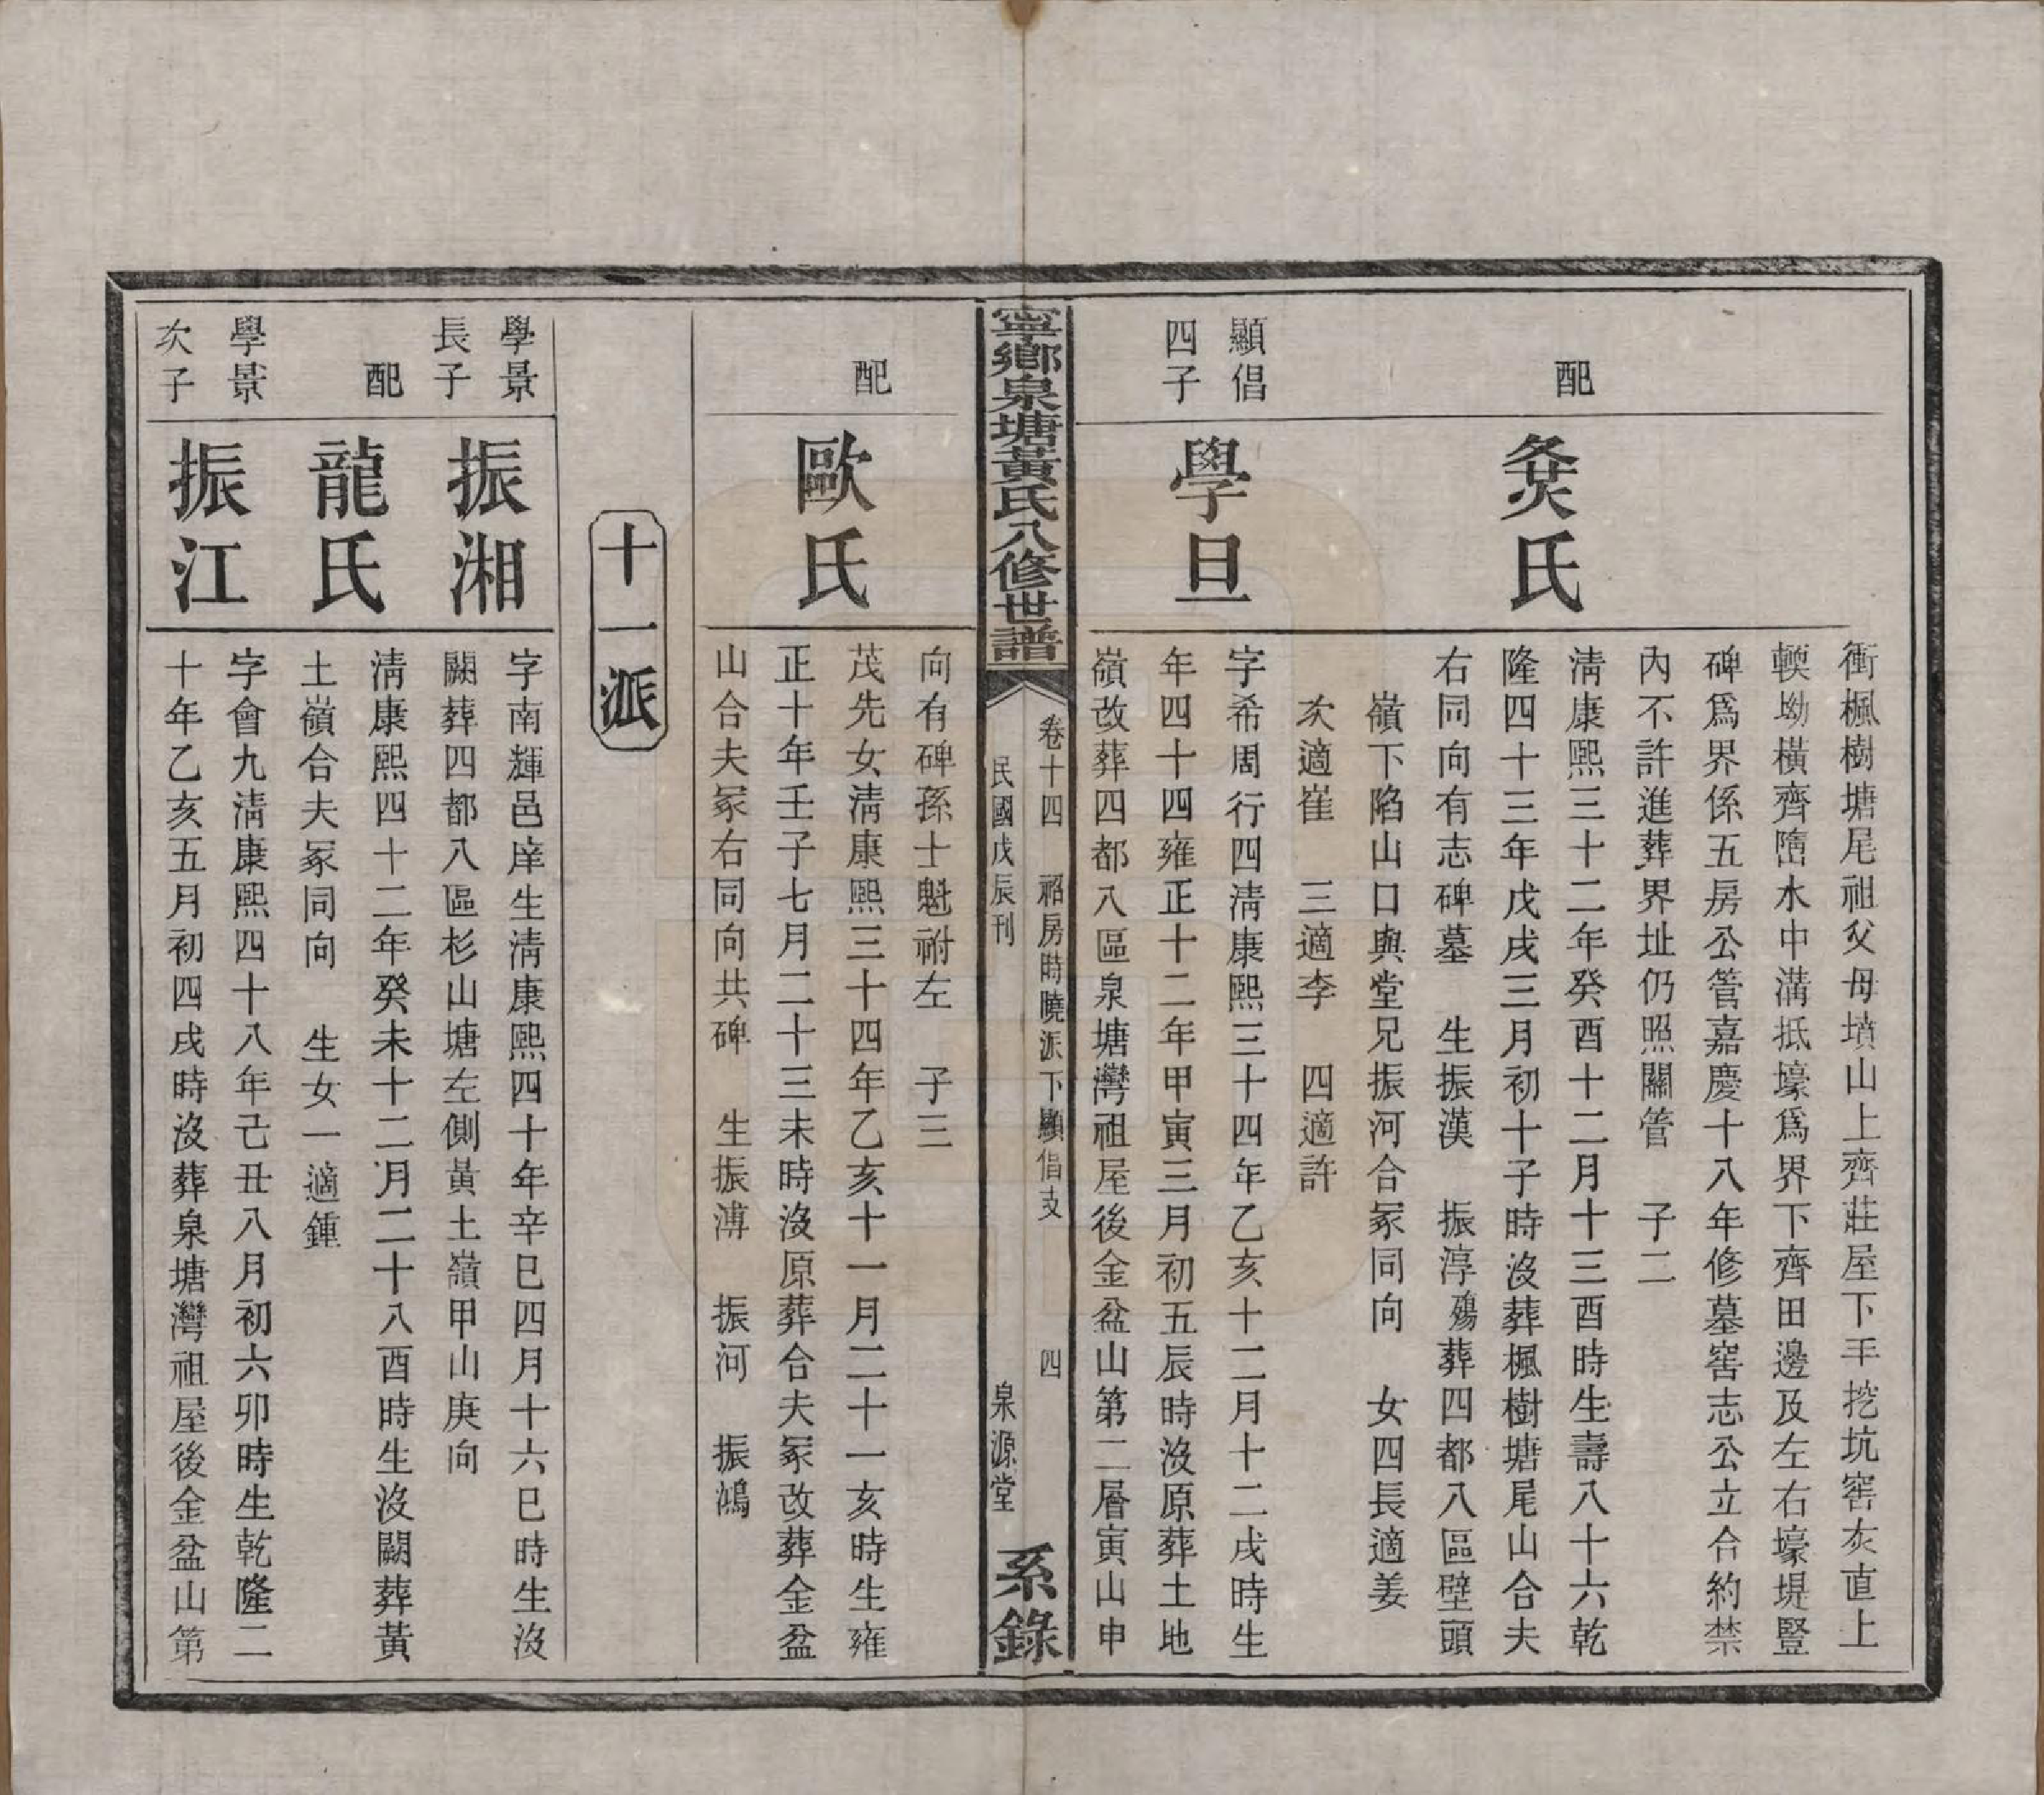 衝楓樹塘尾祖父母墳山上齊莊屋下平挖坑窖灰直上
輭坳橫齊㙮水中溝抵壕爲界下齊田邊及左右壕堤豎
碑爲界係五房公管嘉慶十八年修墓窖志公立合約禁
內不許進葬界址仍照關管　子二
配
炎氏
淸康熙三十二年癸酉十二月十三酉時生壽八十六乾
隆四十三年戊戌三月初十子時沒葬楓樹塘尾山合夫
右同向有志碑墓　生振漢　振淳殤葬四都八區壁頭
嶺下陷山口與堂兄振河合冢同向　女四長適姜
次適崔　三適李　四適許
顯倡
四子
學旦
字希周行四淸康熙三十四年乙亥十二月十二戌時生
年四十四雍正十二年甲寅三月初五辰時沒原葬土地
嶺改葬四都八區泉塘灣祖屋後金盆山第二層寅山申
寧鄉泉塘黃氏八修世譜
卷十四　祒房時曉派下顯倡支　四
民國戊辰刊　泉源堂
系錄
向有碑孫士魁祔左　子三
配
歐氏
茂先女淸康熙三十四年乙亥十一月二十一亥時生雍
正十年壬子七月二十三未時沒原葬合夫冢改葬金盆
山合夫冢右同向共碑　生振溥　振河　振鴻
十一派
學景
長子
振湘
字南輝邑庠生淸康熙四十年辛巳四月十六巳時生沒
闕葬四都八區杉山塘左側黃土嶺甲山庚向
配
龍氏
淸康熙四十二年癸未十二月二十八酉時生沒闕葬黃
土嶺合夫冢同向　生女一適鍾
學景
次子
振江
字會九淸康熙四十八年己丑八月初六卯時生乾隆二
十年乙亥五月初四戌時沒葬泉塘灣祖屋後金盆山第